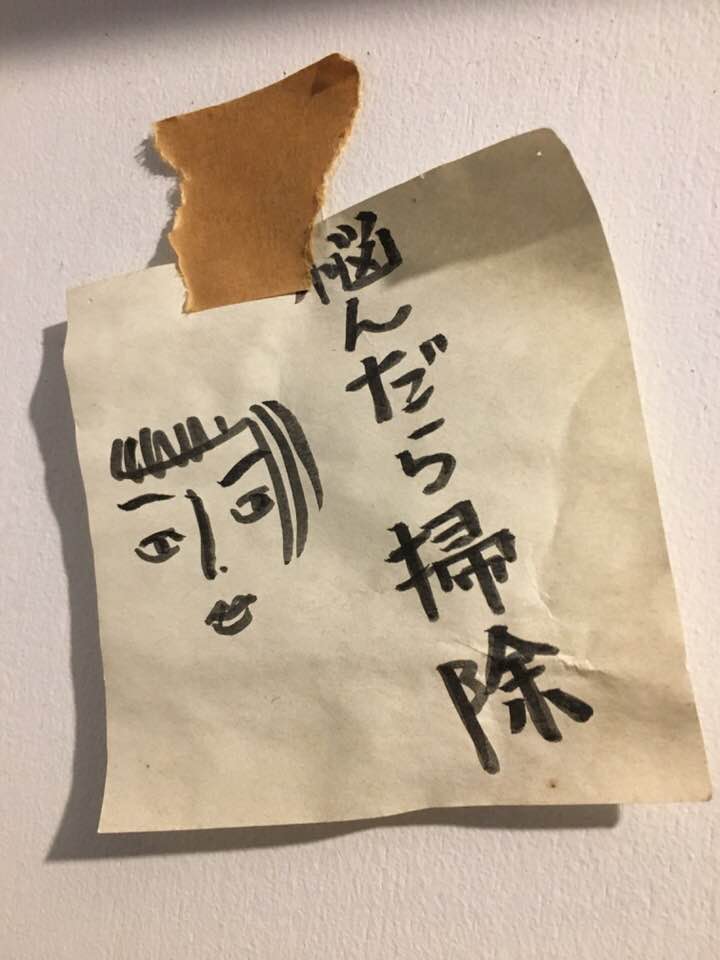 悩んだら掃除